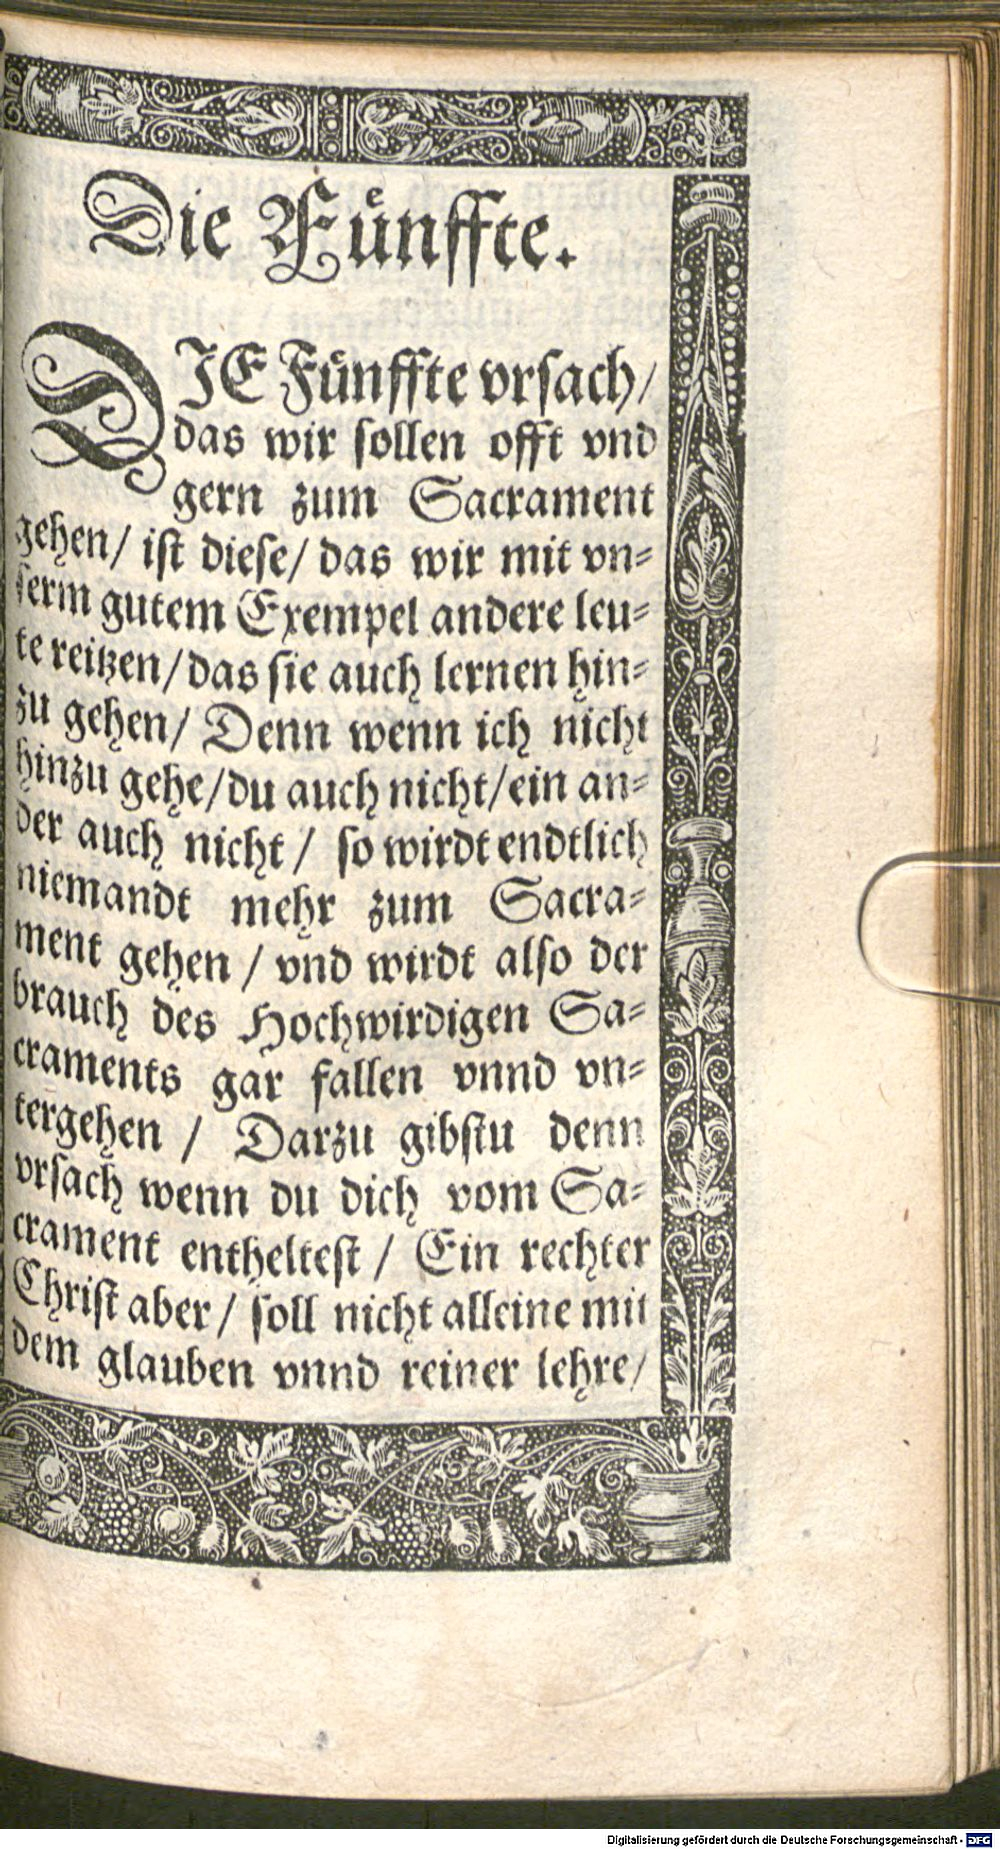 Die Fůnffte.
DIE Fůnffte vrſach/
das wir ſollen offt vnd
gern zum Sacrament
gehen/ iſt dieſe/ das wir mit vn⸗
ſerm gutem Exempel andere leu⸗
te reitzen/ das ſie auch lernen hin⸗
zu gehen/ Denn wenn ich nicht
hinzu gehe/ du auch nicht/ ein an⸗
der auch nicht/ ſo wirdt endtlich
niemandt mehr zum Sacra⸗
ment gehen/ vnd wirdt alſo der
brauch des Hochwirdigen Sa⸗
craments gar fallen vnnd vn⸗
tergehen/ Darzu gibſtu denn
vrſach wenn du dich vom Sa⸗
crament entheltest/ Ein rechter
Chriſt aber/ ſoll nicht alleine mit
dem glauben vnnd reiner lehre/
Digitalisierung gefördert durch die Deutsche Forschungsgemeinschaft - DFG